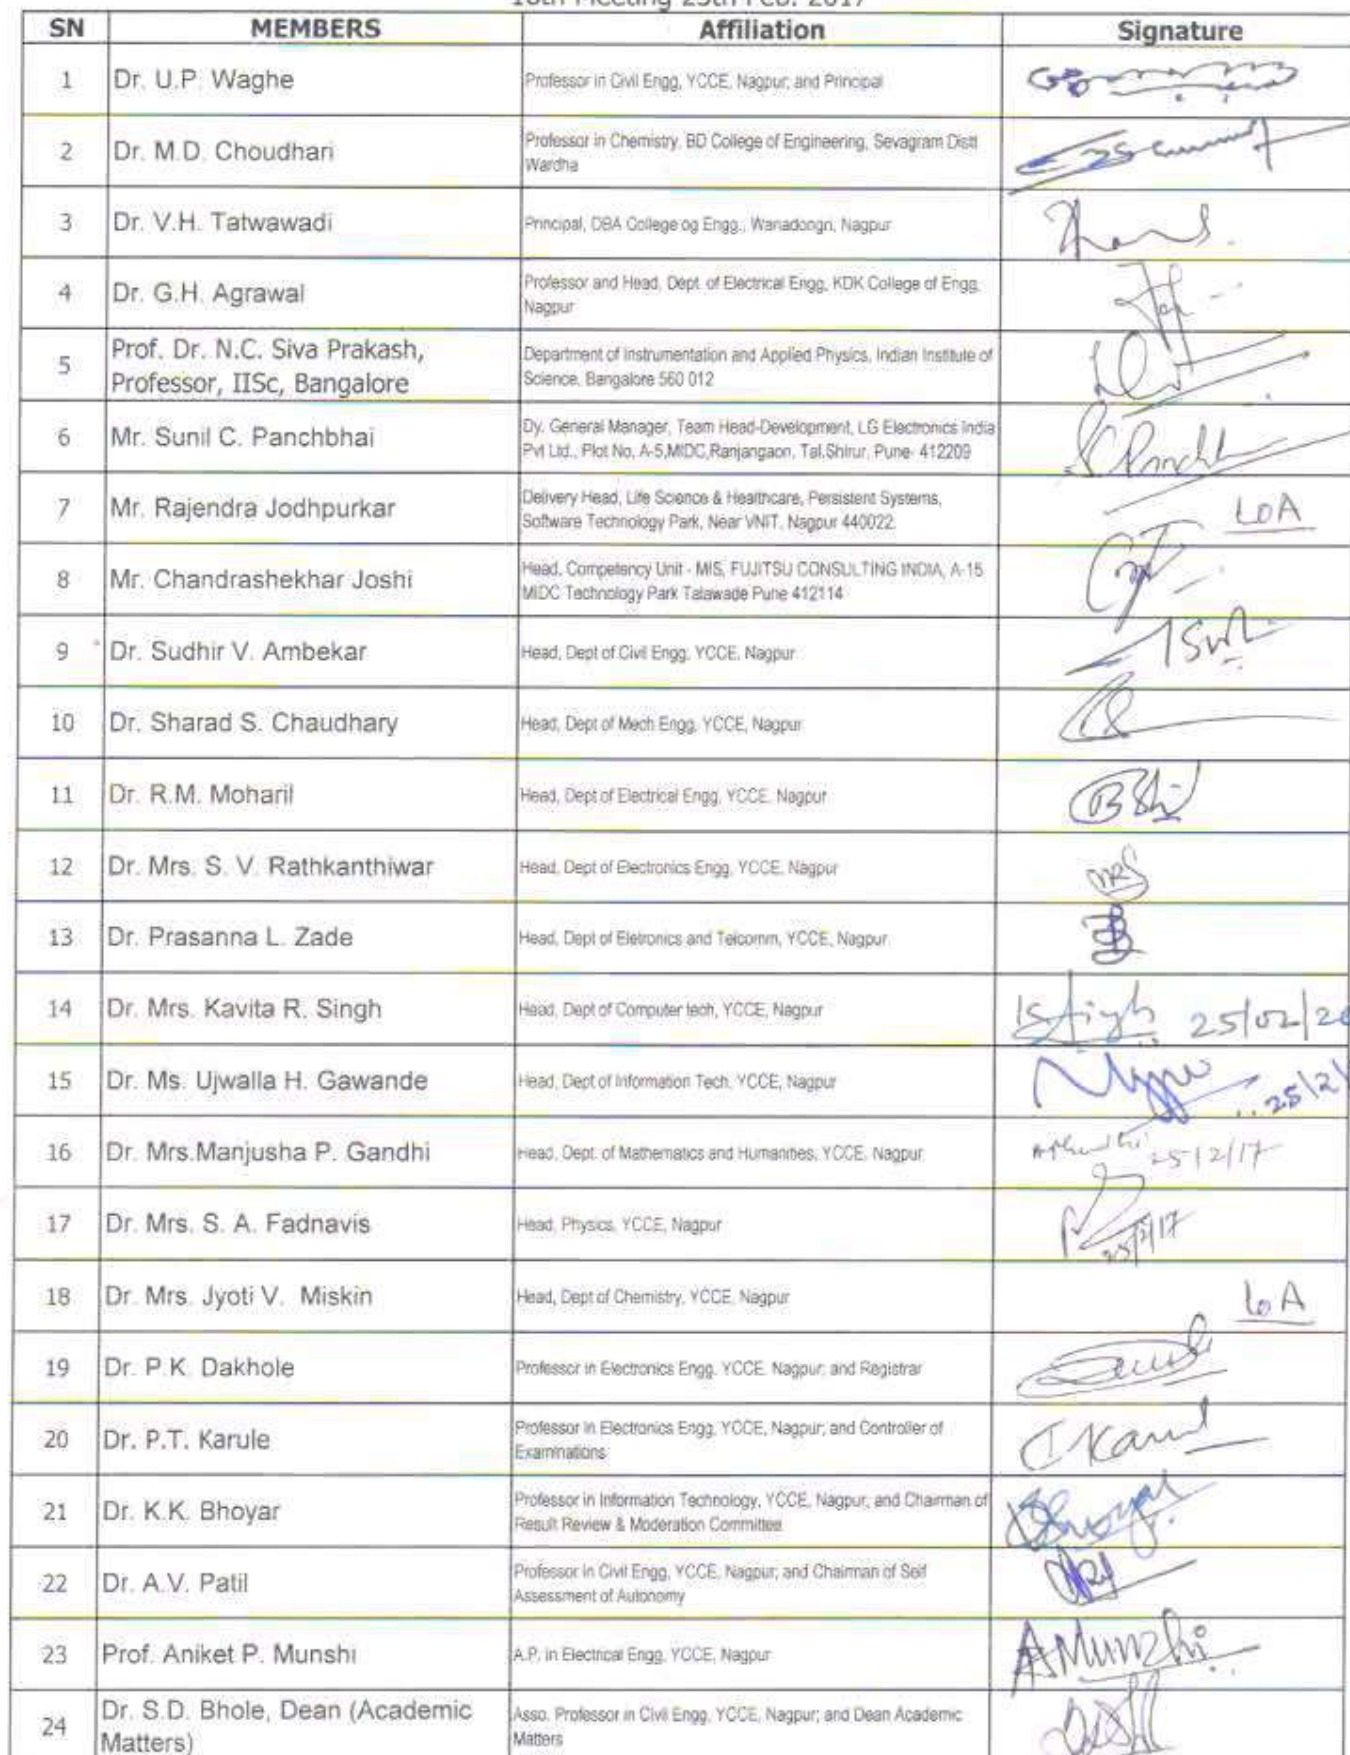 Meeting 25th Feb. 2017
SN MEMBERS Affiliation Signature
1 Dr. U.P. Waghe Professor in Civil Engg, YCCE, Nagpur; and Principal
2 Dr. M.D. Choudhari Professor in Chemistry, BD College of Engineering, Sevagram Distt
Wardha
3 Dr. V.H. Tatwawadi Principal, DBA College og Engg., Wanadongri, Nagpur
4 Dr. G.H. Agrawal Professor and Head, Dept. of Electrical Engg, KDK College of Engg,
Nagpur
5 Prof. Dr. N.C. Siva Prakash,
Professor, IISc, Bangalore
Department of Instrumentation and Applied Physics, Indian Institute of
Science, Bangalore 560 012
6 Mr. Sunil C. Panchbhai Dy. General Manager, Team Head-Development, LG Electronics India
Pvt Ltd., Plot No, A-5,MIDC,Ranjangaon, Tal.Shirur, Pune- 412209
7 Mr. Rajendra Jodhpurkar Delivery Head, Life Science & Healthcare, Persistent Systems,
Software Technology Park, Near VNIT, Nagpur 440022. LOA
8 Mr. Chandrashekhar Joshi Head, Competency Unit - MIS, FUJITSU CONSULTING INDIA, A-15
MIDC Technology Park Talawade Pune 412114
9 Dr. Sudhir V. Ambekar Head, Dept of Civil Engg, YCCE, Nagpur
10 Dr. Sharad S. Chaudhary Head, Dept of Mech Engg, YCCE, Nagpur
11 Dr. R.M. Moharil Head, Dept of Electrical Engg, YCCE, Nagpur
12 Dr. Mrs. S. V. Rathkanthiwar Head, Dept of Electronics Engg, YCCE, Nagpur
13 Dr. Prasanna L. Zade Head, Dept of Eletronics and Telcomm, YCCE, Nagpur
14 Dr. Mrs. Kavita R. Singh Head, Dept of Computer tech, YCCE, Nagpur 25/02/20
15 Dr. Ms. Ujwalla H. Gawande Head, Dept of Information Tech, YCCE, Nagpur 25/2/
16 Dr. Mrs.Manjusha P. Gandhi Head, Dept. of Mathematics and Humanities, YCCE, Nagpur 25/2/17
17 Dr. Mrs. S. A. Fadnavis Head, Physics, YCCE, Nagpur 25/2/17
18 Dr. Mrs. Jyoti V. Miskin Head, Dept of Chemistry, YCCE, Nagpur LoA
19 Dr. P.K. Dakhole Professor in Electronics Engg, YCCE, Nagpur; and Registrar
20 Dr. P.T. Karule Professor in Electronics Engg, YCCE, Nagpur; and Controller of
Examinations
21 Dr. K.K. Bhoyar Professor in Information Technology, YCCE, Nagpur; and Chairman of
Result Review & Moderation Committee
22 Dr. A.V. Patil Professor in Civil Engg, YCCE, Nagpur; and Chairman of Self
Assessment of Autonomy
23 Prof. Aniket P. Munshi A.P. in Electrical Engg, YCCE, Nagpur AMunshi
24 Dr. S.D. Bhole, Dean (Academic
Matters)
Asso. Professor in Civil Engg, YCCE, Nagpur; and Dean Academic
Matters